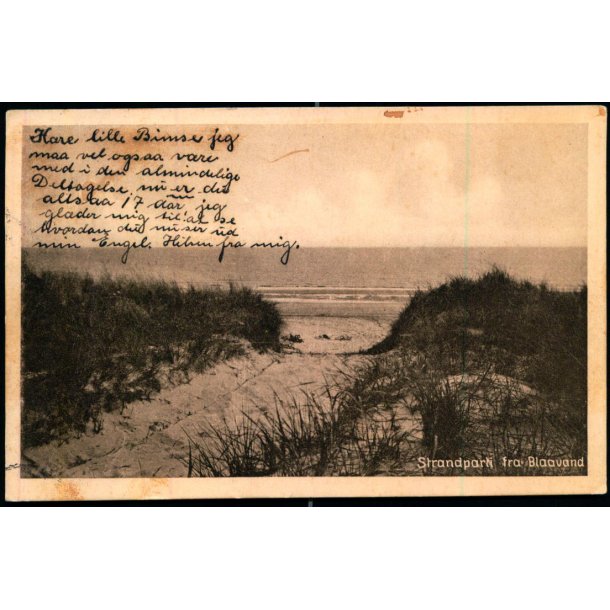 Kære lille Bimse jeg
maa vel ogsaa være
med i den almindelige
Deltagelse, nu er du
altsaa 17 aar, jeg
glæder mig til at se
hvordan du nu ser ud
min Engel. Hilsen fra mig.
Strandparti fra Blaavand